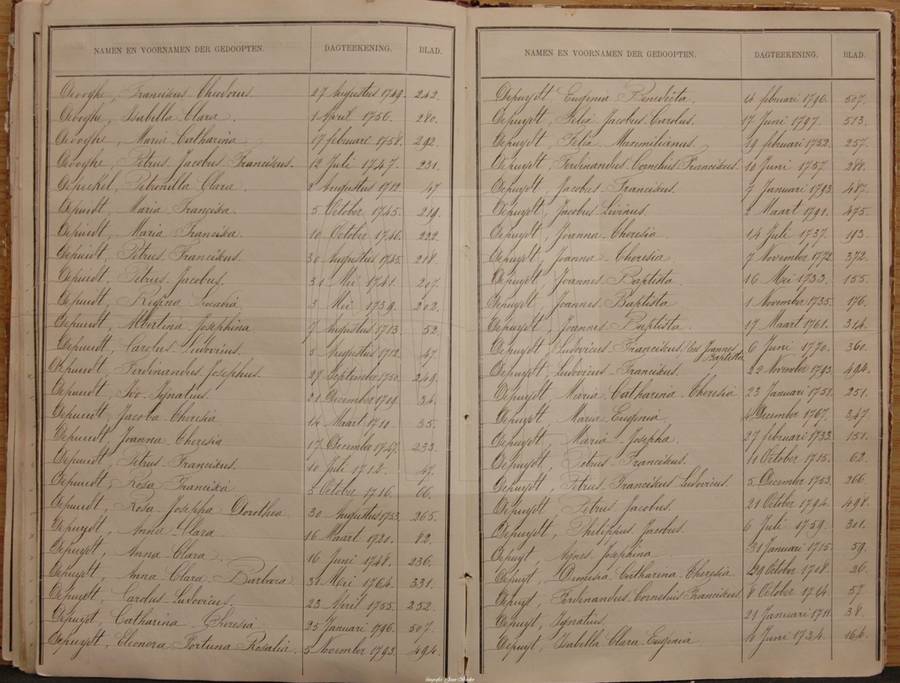 NAMEN EN VOORNAMEN DER GEDOOPTEN. DAGTEEKENING. BLAD.
Devooghe, Franciscus Theodorus 27 Augustus 1749. 242.
Devooghe, Isabella Clara 1 April 1756. 280.
Devooghe, Maria Catharina 17 februari 1758. 292.
Devooghe, Petrus Jacobus Franciskus. 12 Juli 1747. 231.
Petronilla Clara 2 Augustus 1712. 47
Depuidt, Maria Franciska. 5 October 1745. 219.
Depuidt, Maria Franciska. 10 October 1746. 222.
Depuidt, Petrus Franciskus. 30 Augustus 1745. 218.
Depuidt, Petrus Jacobus. 31 Mei 1741. 207.
Depuidt, Regina 3 Mei 1739. 202.
Depuindt, Albertina Josephina 7 Augustus 1713. 52
Depuindt, Carolus Ludovicus. 5 Augustus 1712. 47.
Depuindt, Ferdinandus Josephus. 27 September 1750. 249.
Depuindt, Ivo Ignatius. 21 December 1709. 34.
Depuindt, Jacoba Theresia 14 Maart 1710. 35.
Depuindt, Joanna Theresia. 17 December 1747. 233.
Depuindt, Petrus Franciskus. 10 Juli 1712. 47.
Depuindt, Rosa Franciska 3 October 1716. 66.
Depuindt, Rosa Josepha Dorothea 30 Augustus 1753. 265.
Depuydt, Anna Clara 16 Maart 1720. 82.
Depuydt, Anna Clara 16 Juni 1748. 236.
Depuydt, Anna Clara Barbara 31 Mei 1764. 331.
Depuydt, Carolus Ludovicus. 23 April 1755. 252.
Depuydt, Catharina Theresia 25 Januari 1796. 507.
Depuydt, Eleonora Fortuna Rosalia. 5 November 1793. 494.
NAMEN EN VOORNAMEN DER GEDOOPTEN. DAGTEEKENING. BLAD.
Depuydt, Eugenia Benedicta 14 februari 1796. 507.
Depuydt, Felix Jacobus Carolus. 17 Juni 1797. 513.
Depuydt, Felix Maximilianus. 19 februari 1752. 257.
Depuydt, Ferdinandus Cornelius Franciskus. 10 Juni 1757. 288.
Depuydt, Jacobus Franciskus. 7 Januari 1793. 487.
Depuydt, Jacobus Livinus. 2 Maart 1791. 475.
Depuydt, Joanna Theresia. 14 Juli 1737. 193.
Depuydt, Joanna Theresia 7 November 1772. 372.
Depuydt, Joannes Baptista 16 Mei 1733. 155.
Depuydt, Joannes Baptista 1 November 1735. 176.
Depuydt, Joannes Baptista. 17 Maart 1761. 314.
Depuydt, Ludovicus Franciskus, Joannes Baptista 6 Juni 1770. 360.
Depuydt, Ludovicus Franciskus. 22 November 1793. 494.
Depuydt, Maria Catharina Theresia 23 Januari 1751. 251.
Depuydt, Maria Eugenia 4 December 1767. 347
Depuydt, Maria Josepha 27 februari 1733. 151.
Depuydt, Petrus Franciskus. 11 October 1715. 62.
Depuydt, Petrus Franciscus Ludovicus. 5 December 1753. 266.
Depuydt, Petrus Jacobus. 21 October 1794. 498.
Depuydt, Philippus Jacobus. 6 Juli 1759. 301.
Depuyt, Agnes Josephina 31 Januari 1715. 59.
Depuyt, Catharina Theresia 29 October 1708. 26.
Depuyt, Ferdinandus Cornelius Franciskus 8 October 1714. 57
Depuyt, Ignatius. 21 Januari 1711. 38.
Depuyt, Isabella Clara Eugenia 16 Juni 1734. 164.